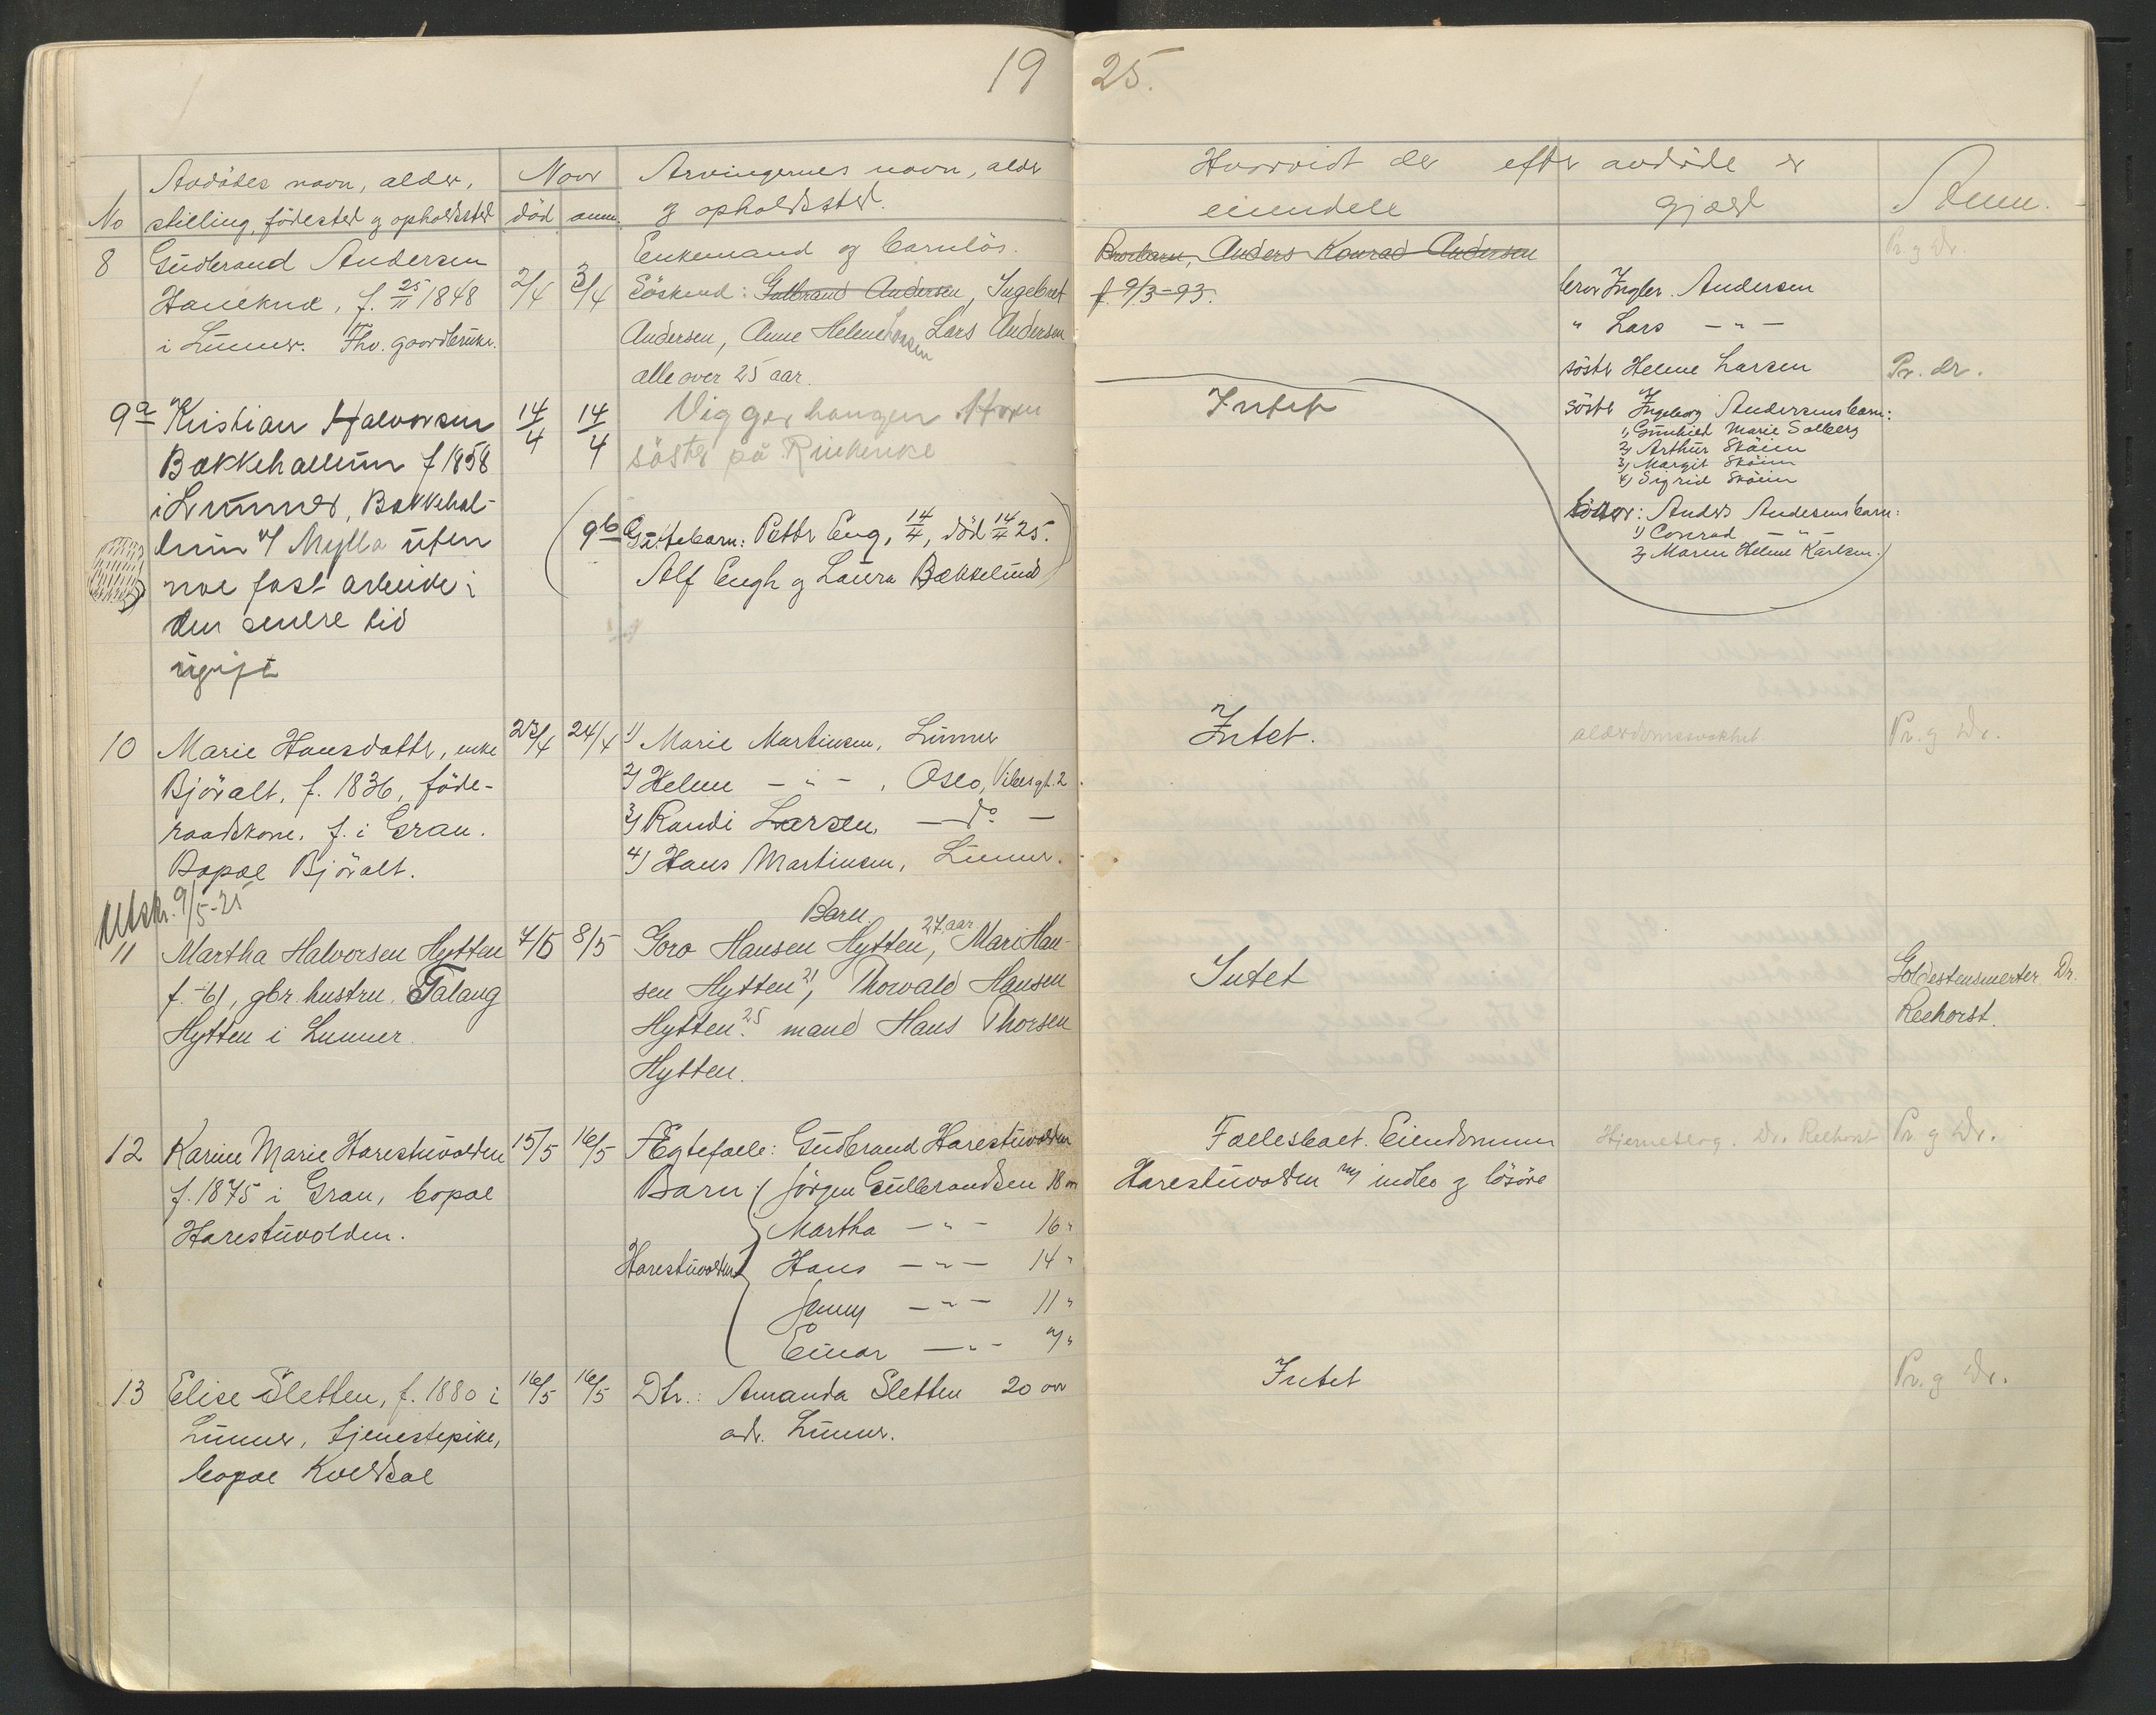 19 25.
No
Avdödes navn, alder,
stilling, födested og opholdssted
Naar
död anm.
Arvingernes navn, alder
og opholdssted.
Hvorvidt der efter avdöde er
eiendele
gjæld
Anm.
8
Gudbrand Andersen
Haneknæ, f. 25/11 1848
i Lunner. Fhv. gaardbruker.
2/4
3/4
Enkemand og barnlös.
Söskend: Gulbrand Andersen, Ingebret
Andersen, Anne Helene Larsen Lars Andersen
alle over 25 aar.
Brorbarn, Anders Konrad Andersen
f. 9/3-93.
bror Ingbr. Andersen
" Lars - " -
söster Helene Larsen
söster Ingeborg Andersens barn:
1) Gunhild Marie Solberg
2) Arthur Sköien
3) Margit Sköien
4) Sigrid Sköien
bror: Anders Andersens barn:
1) Conrad - " -
2) Maren Helene Karlsen.)
Pr. g Dr
Pr. dr.
9a
Kristian Halvorsen
Bakkehallum f 1858
i Lunner, Bakkehal-
lum v/ Mylla uten
noe fast arbeide i
den senere tid
ugift
14/4
14/4
Viggerhaugen
söster på
Intet
(9b Guttebarn: Petter Eng, 14/4, död 14/4 25.
Alf Engh og Laura Bækkelund)
10
Marie Hansdatter, enke
Björalt, f. 1836, föde-
raadskone. f. i Gran.
Bopæl Björalt.
23/4
24/4
1) Marie Martinsen, Lunner
2) Helene - " - , Oslo, Vibesgt. 2
3) Randi Larsen, - do -
4) Hans Martinsen, Lunner.
Intet.
alderdomssvakhet.
Pr. g Dr.
Utskr. 9/5-25
11
Martha Halvorsen Hytten
f. -61, gbr. hustru, Talang
Hytten i Lunner.
7/5
8/5
Barn.
Goro Hansen Hytten, 27 aar, Mari Han-
sen Hytten 21, Thorvald Hansen
Hytten 25. mand Hans Thorsen
Hytten.
Intet
Galdestensmerter Dr.
Reehorst.
12
Karine Marie Harestuvolden
f. 1875 i Gran, bopæl
Harestuvolden.
15/5
16/5
Ægtefælle: Gudbrand Harestuvolden
Barn: Jörgen Gulbrandsen 18 aar
Martha - " - 16 "
Harestuvolden Hans - " - 14 "
Jenny - " - 11 "
Einar - " - 7 "
Fællesboet. Eiendommen
Harestuvolden m/ indbo g lösöre
Hjerneslag. Dr. Reehorst
Pr. g Dr.
13
Elise Sletten, f. 1880 i
Lunner, tjenestepike,
bopæl Kvelsæl
16/5
16/5
Dtr.: Amanda Sletten 20 aar
adr. Lunner.
Intet
Pr. g Dr.